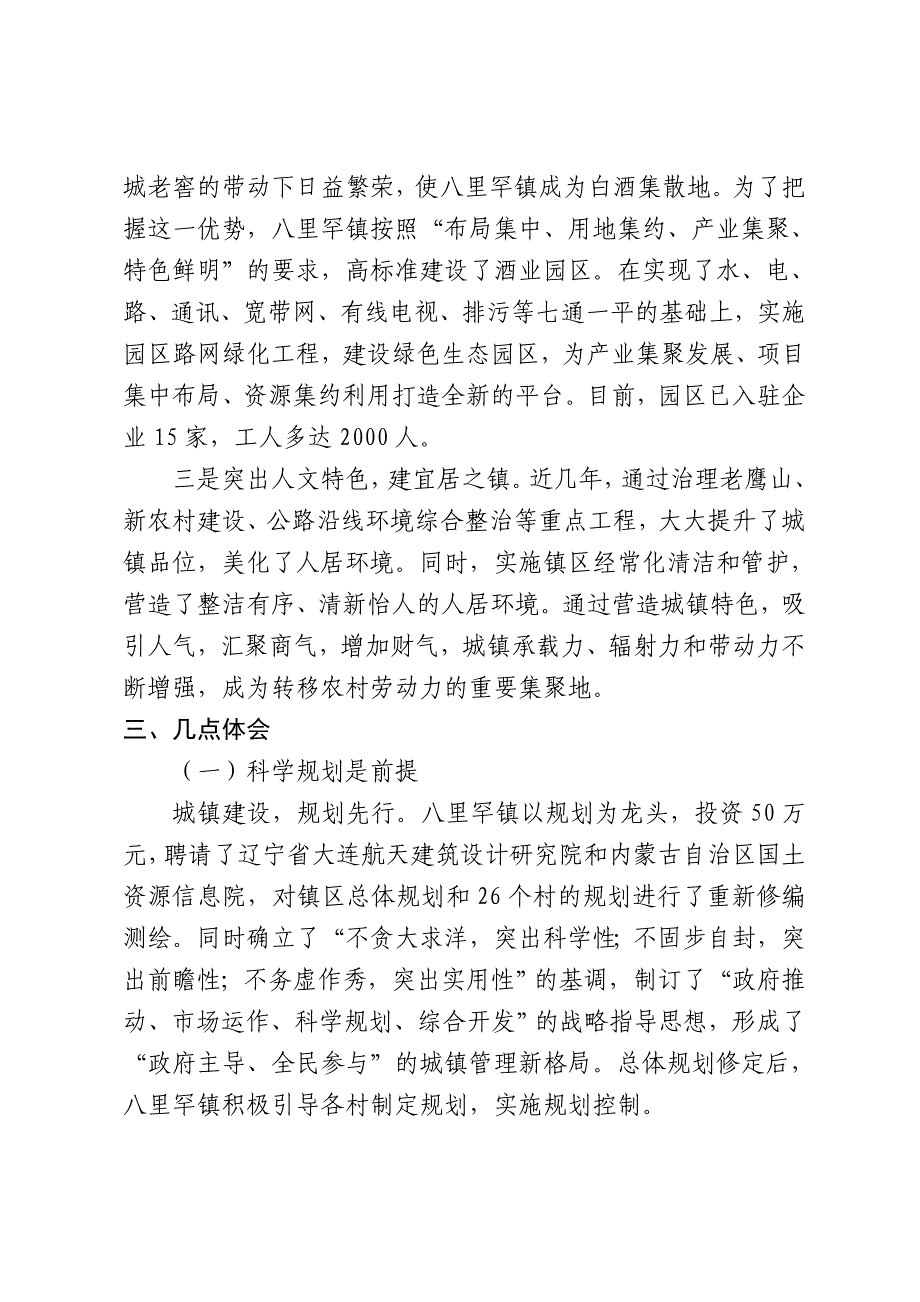 城老窖的带动下日益繁荣，使八里罕镇成为白酒集散地。为了把
握这一优势，八里罕镇按照“布局集中、用地集约、产业集聚、
特色鲜明”的要求，高标准建设了酒业园区。在实现了水、电、
路、通讯、宽带网、有线电视、排污等七通一平的基础上，实施
园区路网绿化工程，建设绿色生态园区，为产业集聚发展、项目
集中布局、资源集约利用打造全新的平台。目前，园区已入驻企
业 15 家，工人多达 2000 人。
三是突出人文特色，建宜居之镇。近几年，通过治理老鹰山、
新农村建设、公路沿线环境综合整治等重点工程，大大提升了城
镇品位，美化了人居环境。同时，实施镇区经常化清洁和管护，
营造了整洁有序、清新怡人的人居环境。通过营造城镇特色，吸
引人气，汇聚商气，增加财气，城镇承载力、辐射力和带动力不
断增强，成为转移农村劳动力的重要集聚地。
三、几点体会
（一）科学规划是前提
城镇建设，规划先行。八里罕镇以规划为龙头，投资 50 万
元，聘请了辽宁省大连航天建筑设计研究院和内蒙古自治区国土
资源信息院，对镇区总体规划和 26 个村的规划进行了重新修编
测绘。同时确立了“不贪大求洋，突出科学性；不固步自封，突
出前瞻性；不务虚作秀，突出实用性”的基调，制订了“政府推
动、市场运作、科学规划、综合开发”的战略指导思想，形成了
“政府主导、全民参与”的城镇管理新格局。总体规划修定后，
八里罕镇积极引导各村制定规划，实施规划控制。